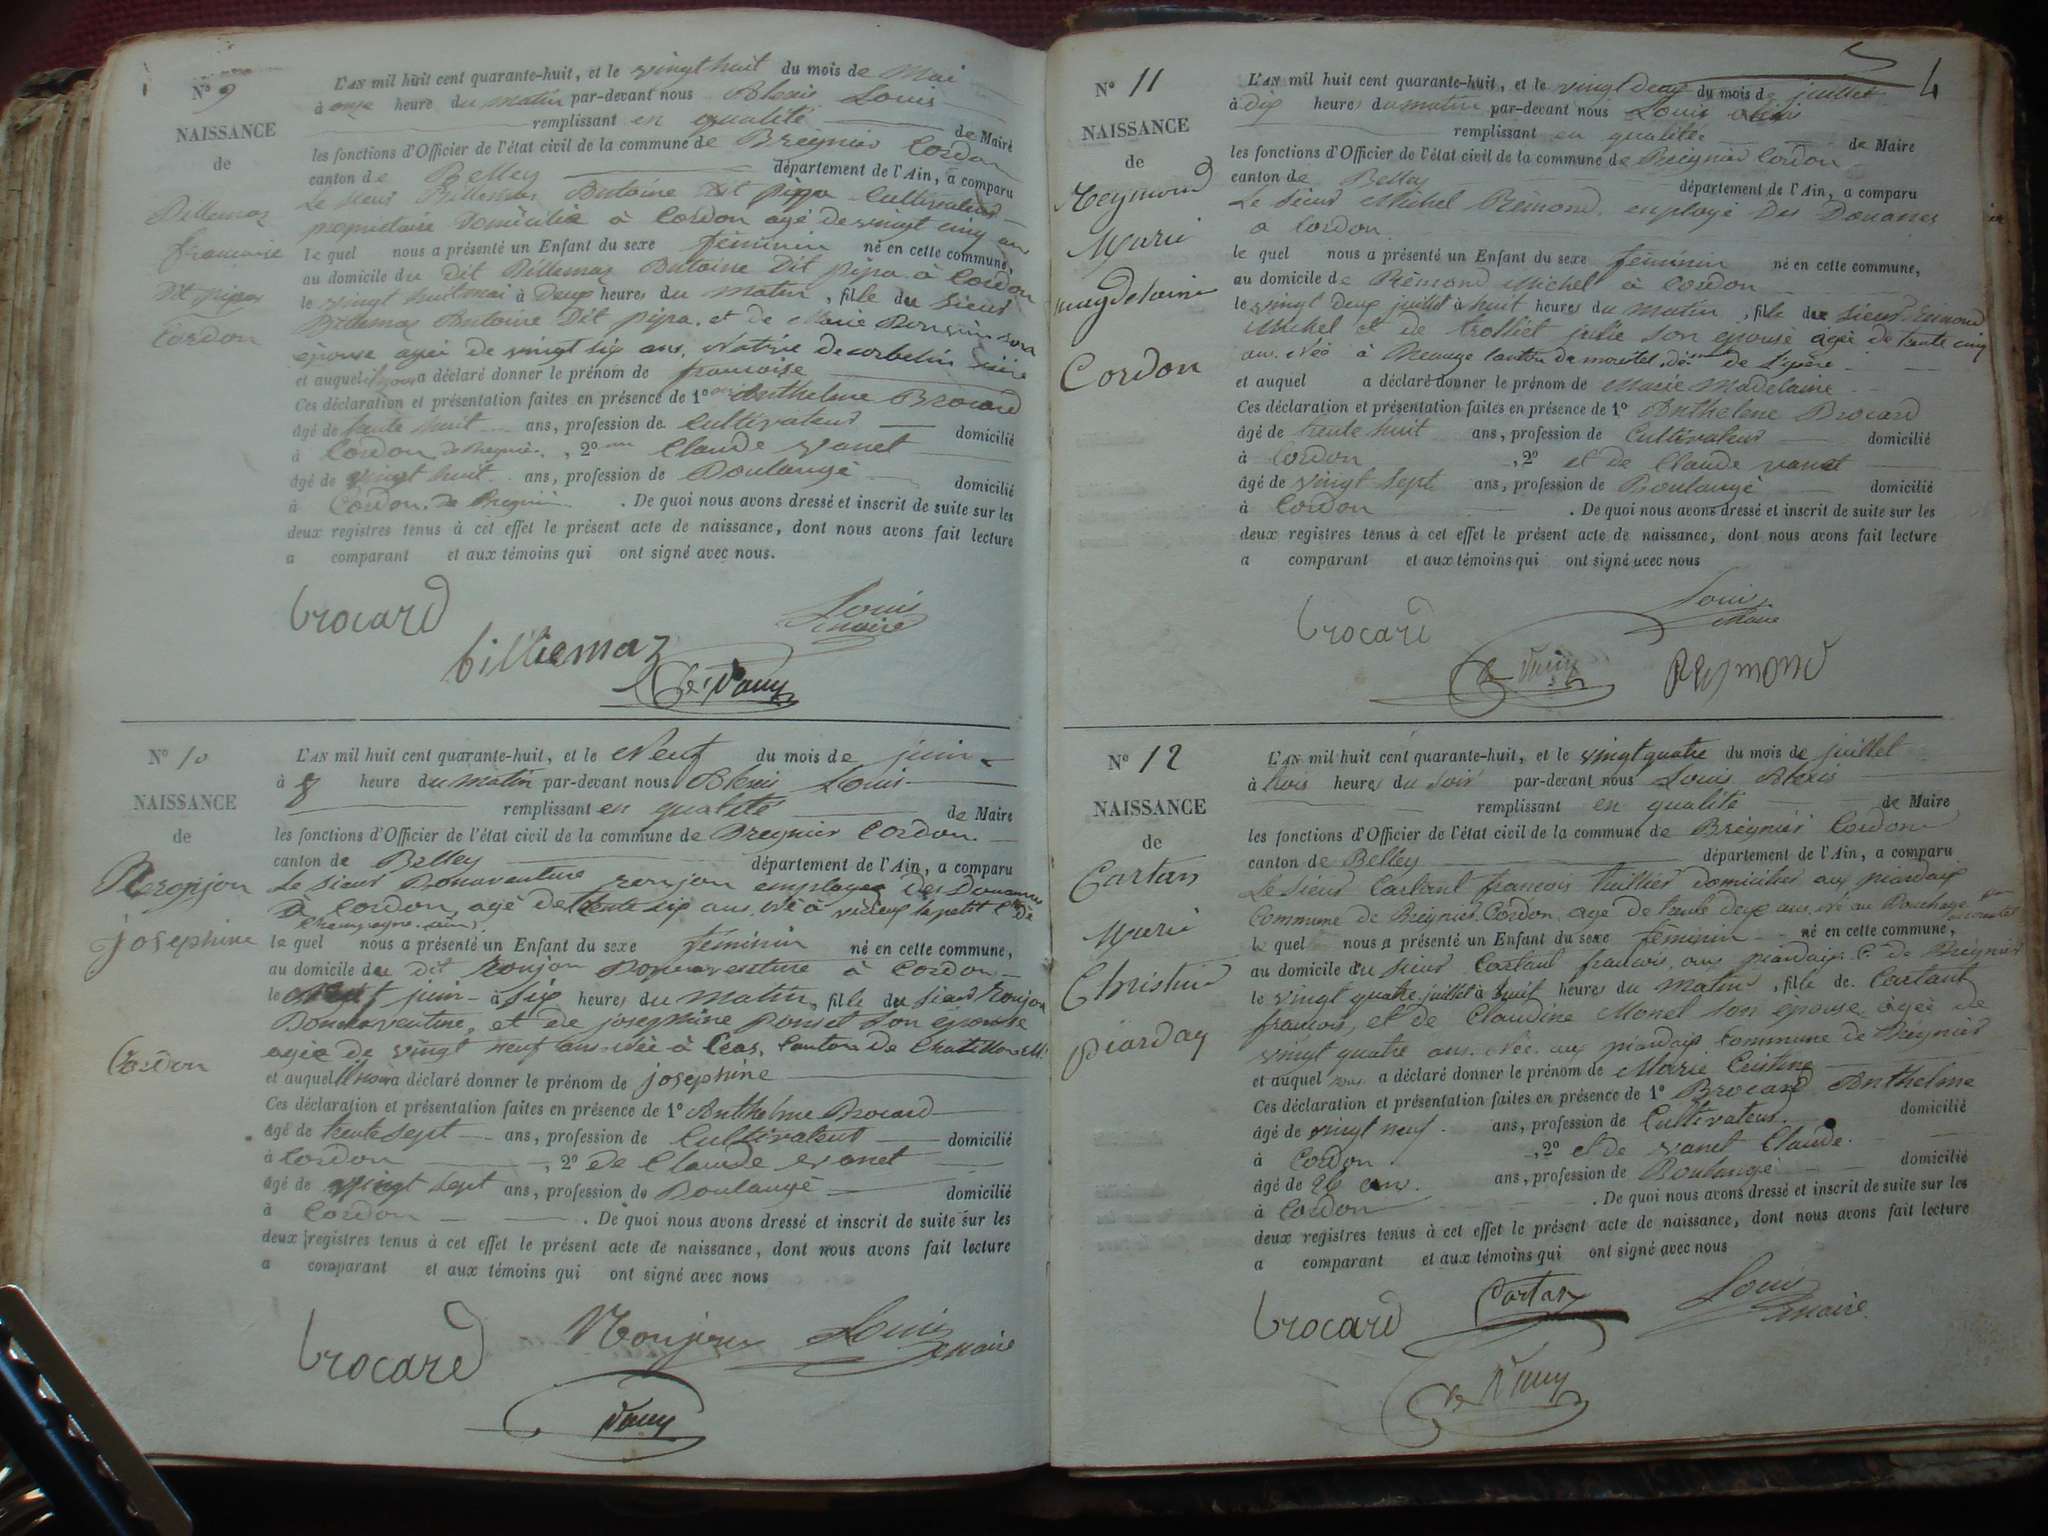 Nº 9
NAISSANCE
de
Billemaz
francoise
Dit pipa
Cordon
L'AN mil huit cent quarante-huit, et le vingt huit du mois de Mai
à onze heure du matin par-devant nous Alexis Louis
remplissant en qualité de Maire
les fonctions d'Officier de l'état civil de la commune de Bregnier Cordon
canton de Belley département de l'Ain, a comparu
Le sieur Billemaz Antoine Dit pippa Cultivateur
propriétaire Domicilié à Cordon agé de vingt cinq ans
le quel nous a présenté un Enfant du sexe féminin né en cette commune,
au domicile du dit Billemaz Antoine Dit pipa à Cordon
le vingt huit mai à Deux heures du matin, fille du sieur
Billemaz Antoine Dit pipa et de Marie son
épouse agée de vingt six ans, Native de corbelin
et auquel il nous a déclaré donner le prénom de francoise
Ces déclaration et présentation faites en présence de 1º Anthelme Brocard
âgé de trente huit ans, profession de Cultivateur domicilié
à Cordon de Bregnié, 2º Claude vanet
âgé de vingt huit ans, profession de Boulangé domicilié
à Cordon de Bregnié. De quoi nous avons dressé et inscrit de suite sur les
deux registres tenus à cet effet le présent acte de naissance, dont nous avons fait lecture
a comparant et aux témoins qui ont signé avec nous.
brocard
Louis
maire
billiemaz
Nº 10
NAISSANCE
de
Reronjon
josephine
Cordon
L'AN mil huit cent quarante-huit, et le Neuf du mois de juin
à 8 heure du matin par-devant nous Alexis Louis
remplissant en qualité de Maire
les fonctions d'Officier de l'état civil de la commune de Bregnier Cordon
canton de Belley département de l'Ain, a comparu
Le sieur Bonaventure ronjon employée des Douannes
à Cordon, agé de trente six ans, né à le petit
Champagne
le quel nous a présenté un Enfant du sexe féminin né en cette commune,
au domicile du dit Ronjon Bonnaventure à Cordon
le Neuf juin à six heures du matin, fille du sieur ronjon
Bonnaventure, et de josephine Ponset son épouse
agée de vingt neuf ans née à Ceas, Canton de Chatillon
et auquel il nous a déclaré donner le prénom de josephine
Ces déclaration et présentation faites en présence de 1º Anthelme Brocard
âgé de trente sept ans, profession de Cultivateur domicilié
à Cordon, 2º de Claude vanet
âgé de vingt sept ans, profession de Boulangé domicilié
à Cordon. De quoi nous avons dressé et inscrit de suite sur les
deux registres tenus à cet effet le présent acte de naissance, dont nous avons fait lecture
a comparant et aux témoins qui ont signé avec nous
brocard
Ronjon
Louis
maire
Nº 11
NAISSANCE
de
Reymond
Marie
magdelaine
Cordon
4
L'AN mil huit cent quarante-huit, et le vingt deux du mois de juillet
à dix heures du matin par-devant nous Louis alexis
remplissant en qualité de Maire
les fonctions d'Officier de l'état civil de la commune de Breignier Cordon
canton de Belley département de l'Ain, a comparu
Le sieur Michel Rémond employé Des Douannes
a Cordon
le quel nous a présenté un Enfant du sexe féminin né en cette commune,
au domicile de Rémond Michel à Cordon
le vingt deux juillet à huit heures du matin, fille du sieur Remond
Michel et de trolliet julie son épouse agée de trente cinq
ans Née à canton de morestel de L'isère
et auquel a déclaré donner le prénom de Marie Madelaine
Ces déclaration et présentation faites en présence de 1º Anthelene Brocard
âgé de trente huit ans, profession de Cultivateur domicilié
à Cordon, 2º et de Claude vanet
âgé de vingt sept ans, profession de Boulangé domicilié
à Cordon. De quoi nous avons dressé et inscrit de suite sur les
deux registres tenus à cet effet le présent acte de naissance, dont nous avons fait lecture
a comparant et aux témoins qui ont signé avec nous
brocard
Louis
Maire
REymond
Nº 12
NAISSANCE
de
Cartan
Marie
Christine
piarday
L'AN mil huit cent quarante-huit, et le vingt quatre du mois de juillet
à trois heures du soir par-devant nous Louis Alexis
remplissant en qualité de Maire
les fonctions d'Officier de l'état civil de la commune de Brégnier Cordon
canton de Belley département de l'Ain, a comparu
Le sieur Cartant francois tuillier domicilier aux piardaix
Commune de Bregnier Cordon, agé de trente deux ans né au Bouchage
le quel nous a présenté un Enfant du sexe féminin né en cette commune,
au domicile du sieur Cartant francois, aux piardaix C. de Bregnier
le vingt quatre juillet à huit heures du matin, fille de Cartant
francois, et de Claudine Monet son épouse, agée de
vingt quatre ans Née aux piardaix Commune de Bregnier
et auquel nous a déclaré donner le prénom de Marie Cristine
Ces déclaration et présentation faites en présence de 1º Brocard Anthelme
âgé de vingt neuf ans, profession de Cultivateur domicilié
à Cordon, 2º et de vanet Claude
âgé de 26 ans ans, profession de Boulangé domicilié
à Cordon. De quoi nous avons dressé et inscrit de suite sur les
deux registres tenus à cet effet le présent acte de naissance, dont nous avons fait lecture
a comparant et aux témoins qui ont signé avec nous
brocard
Cartan
Louis
maire